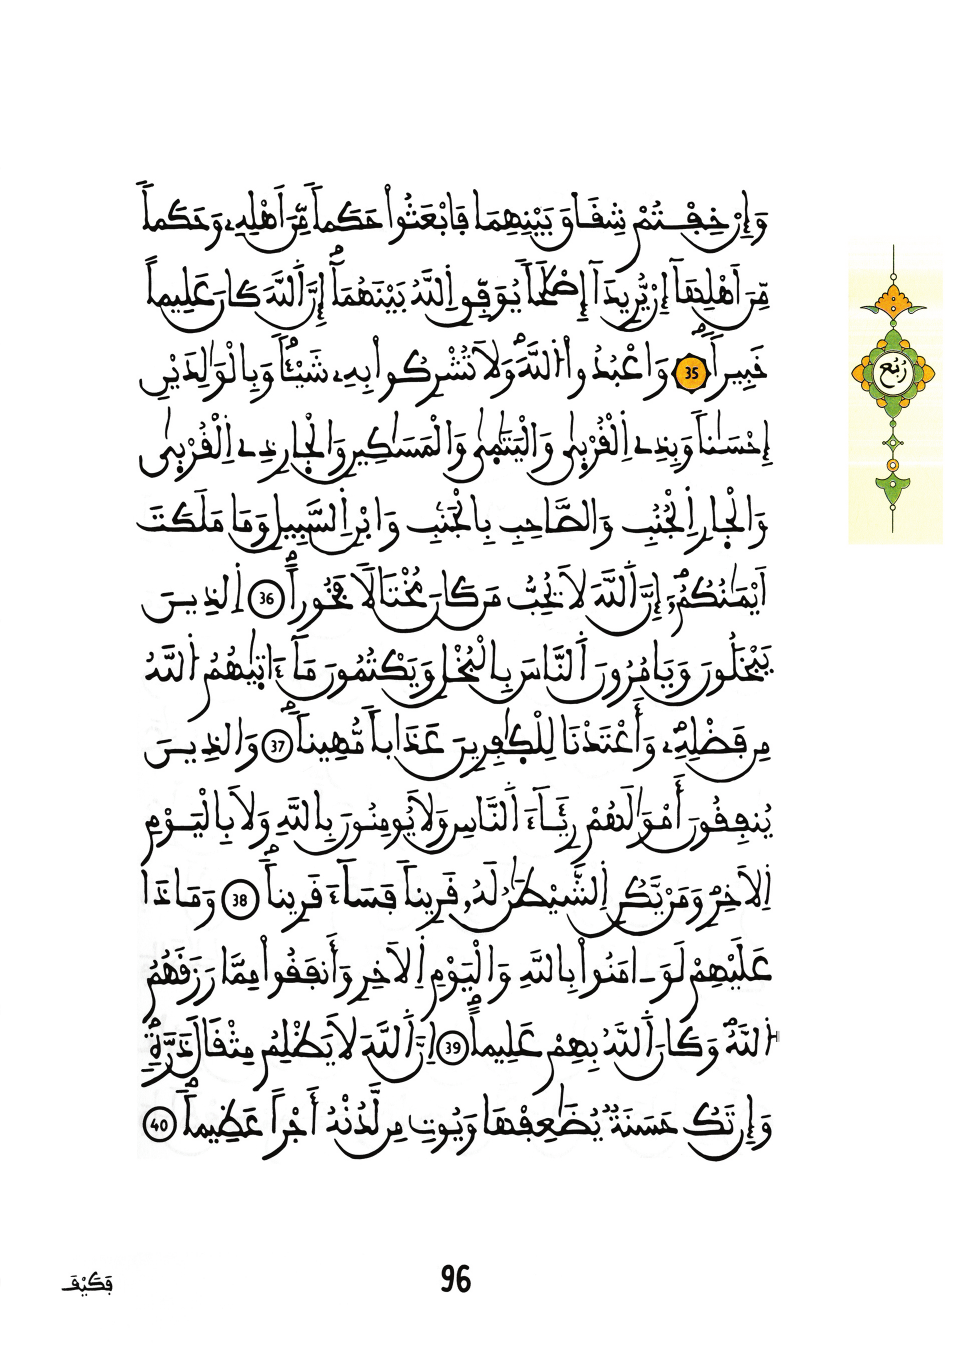 وَإِنْ خِفْتُمْ شِقَاقَ بَيْنِهِمَا فَابْعَثُوا حَكَماً مِّنَ اَهْلِهِۦ وَحَكَماً
مِّنَ اَهْلِهَآ إِنْ يُّرِيدَآ إِصْلَٰحاً يُوَفِّقِ اِ۬للَّهُ بَيْنَهُمَآۖ إِنَّ اَ۬للَّهَ كَانَ عَلِيماً
خَبِيراًۖ 35 وَاعْبُدُوا اُ۬للَّهَۖ وَلَا تُشْرِكُوا بِهِۦ شَيْـٔاًۖ وَبِالْوَٰلِدَيْنِ
إِحْسَٰناً وَبِذِے اِ۬لْقُرْبَىٰ وَالْيَتَٰمَىٰ وَالْمَسَٰكِينِ وَالْجَارِ ذِے اِ۬لْقُرْبَىٰ
وَالْجَارِ اِ۬لْجُنُبِ وَالصَّاحِبِ بِالْجَنۢبِ وَابْنِ اِ۬لسَّبِيلِ وَمَا مَلَكَتَ
اَيْمَٰنُكُمُۥٓۖ إِنَّ اَ۬للَّهَ لَا يُحِبُّ مَن كَانَ مُخْتَالاً فَخُوراًۖ 36 اِ۬لذِينَ
يَبْخَلُونَ وَيَامُرُونَ اَ۬لنَّاسَ بِالْبُخْلِ وَيَكْتُمُونَ مَآ ءَاتَيٰهُمُ اُ۬للَّهُ
مِن فَضْلِهِۦۖ وَأَعْتَدْنَا لِلْكٰ۪فِرِينَ عَذَاباً مُّهِيناًۖ 37 وَالذِينَ
يُنفِقُونَ أَمْوَٰلَهُمْ رِئَآءَ اَ۬لنَّاسِ وَلَا يُومِنُونَ بِاللَّهِ وَلَا بِالْيَوْمِ
اِ۬لَاخِرِۖ وَمَنْ يَّكُنِ اِ۬لشَّيْطَٰنُ لَهُۥ قَرِيناً فَسَآءَ قَرِيناًۖ 38 وَمَاذَا
عَلَيْهِمْ لَوَ اٰمَنُوا بِاللَّهِ وَالْيَوْمِ اِ۬لَاخِرِ وَأَنفَقُوا مِمَّا رَزَقَهُمُ
اُ۬للَّهُۖ وَكَانَ اَ۬للَّهُ بِهِمْ عَلِيماًۖ 39 اِنَّ اَ۬للَّهَ لَا يَظْلِمُ مِثْقَالَ ذَرَّةٍۖ
وَإِن تَكُ حَسَنَةٌۖ يُضَٰعِفْهَا وَيُوتِ مِن لَّدُنْهُ أَجْراً عَظِيماًۖ 40
رُبُع
96
فَكَيْفَ